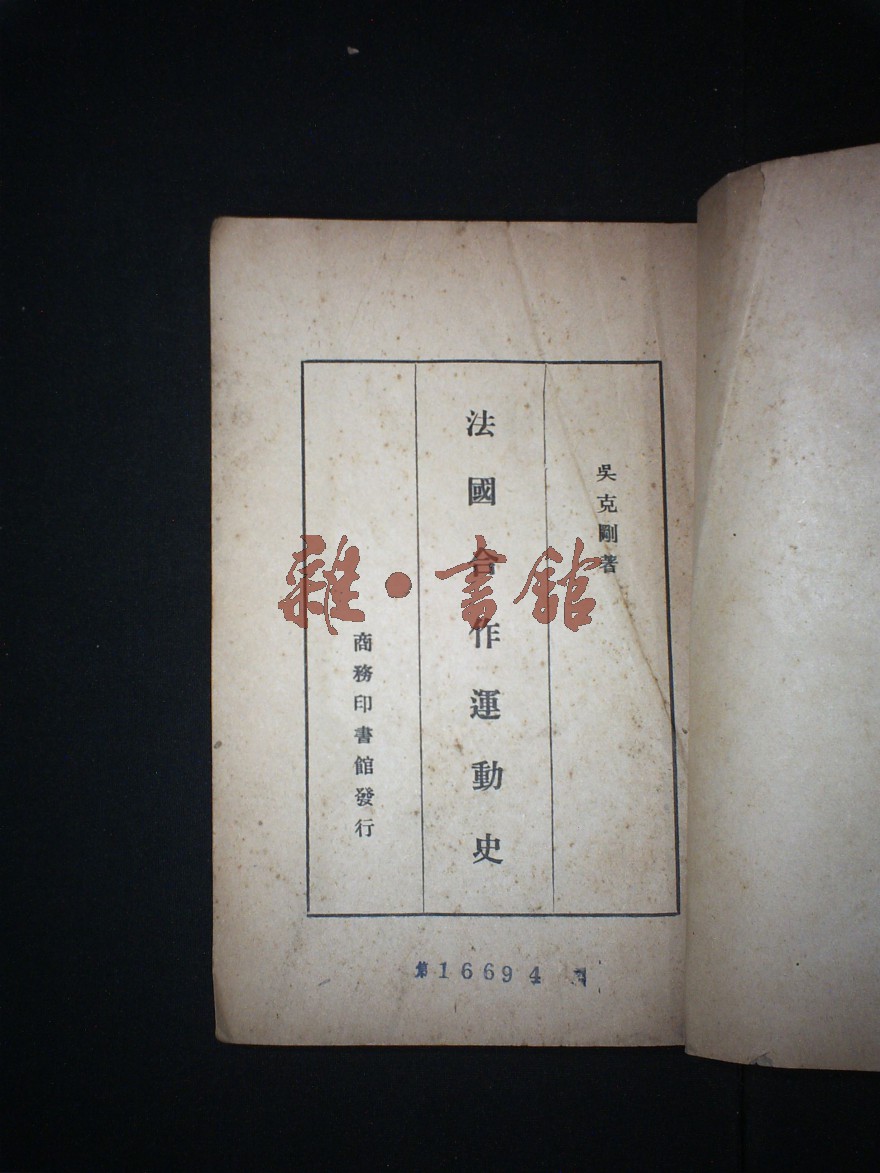 吳克剛著
法國合作運動史
商務印書館發行
雜·書館
第16694